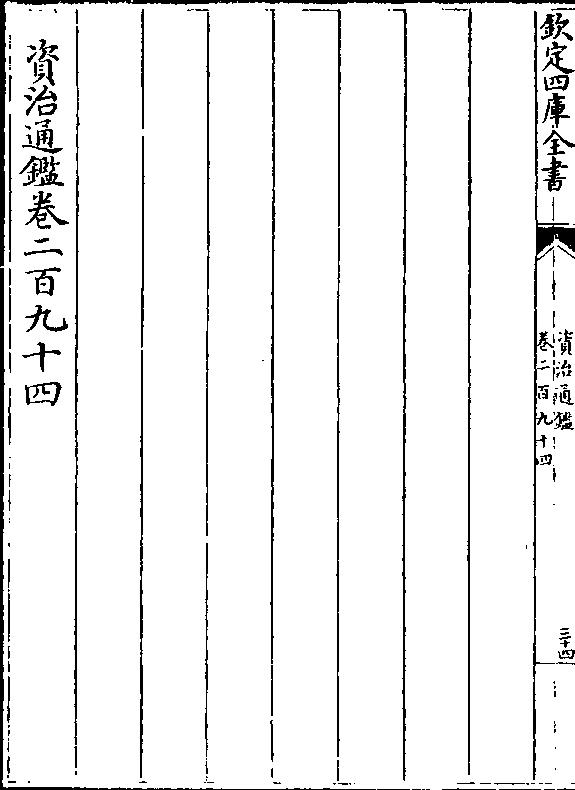 欽定四庫全書
資治通鑑
卷二百九十四
三十四
資治通鑑卷二百九十四